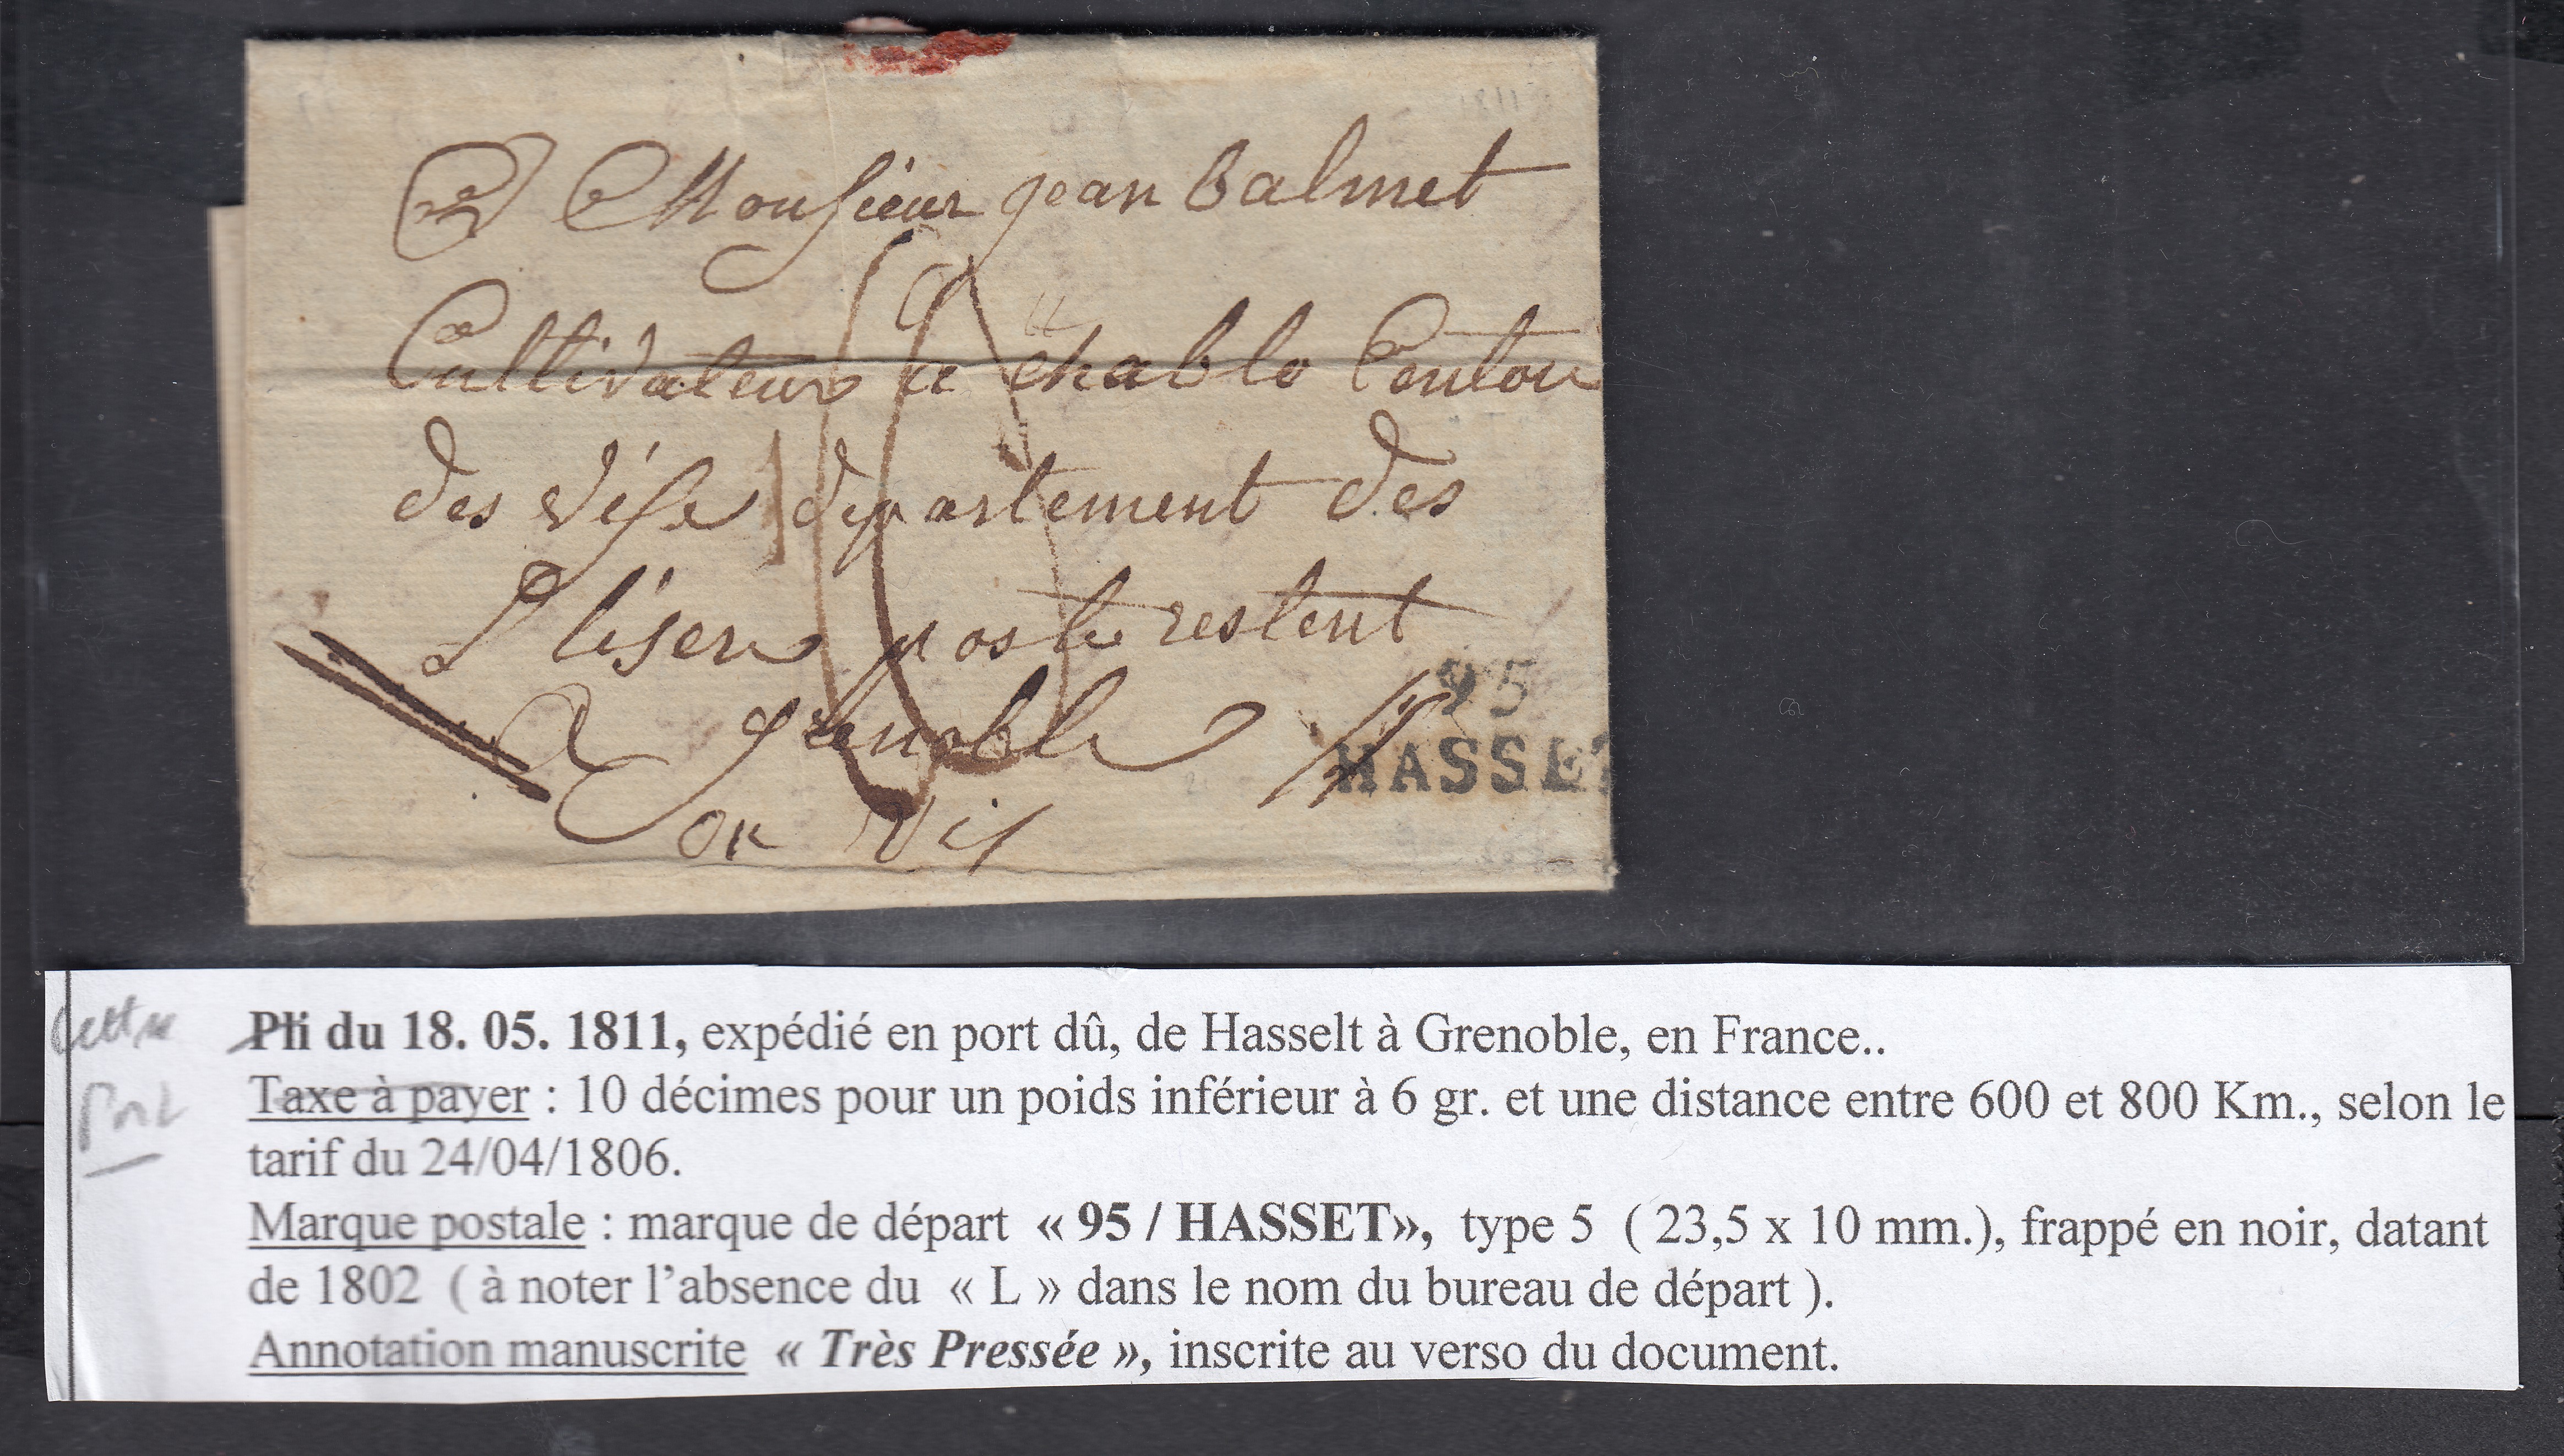 A Monsieur jean Balmet
Cultivateur a chablo Centon
des Vife departement des
Liser poste restent
95
a grenoble
HASSET
ou Vif
Lettre
Pli du 18. 05. 1811, expédié en port dû, de Hasselt à Grenoble, en France..
Port
Taxe à payer : 10 décimes pour un poids inférieur à 6 gr. et une distance entre 600 et 800 Km., selon le
tarif du 24/04/1806.
Marque postale : marque de départ « 95 / HASSET», type 5 ( 23,5 x 10 mm.), frappé en noir, datant
de 1802 ( à noter l’absence du « L » dans le nom du bureau de départ ).
Annotation manuscrite « Très Pressée », inscrite au verso du document.